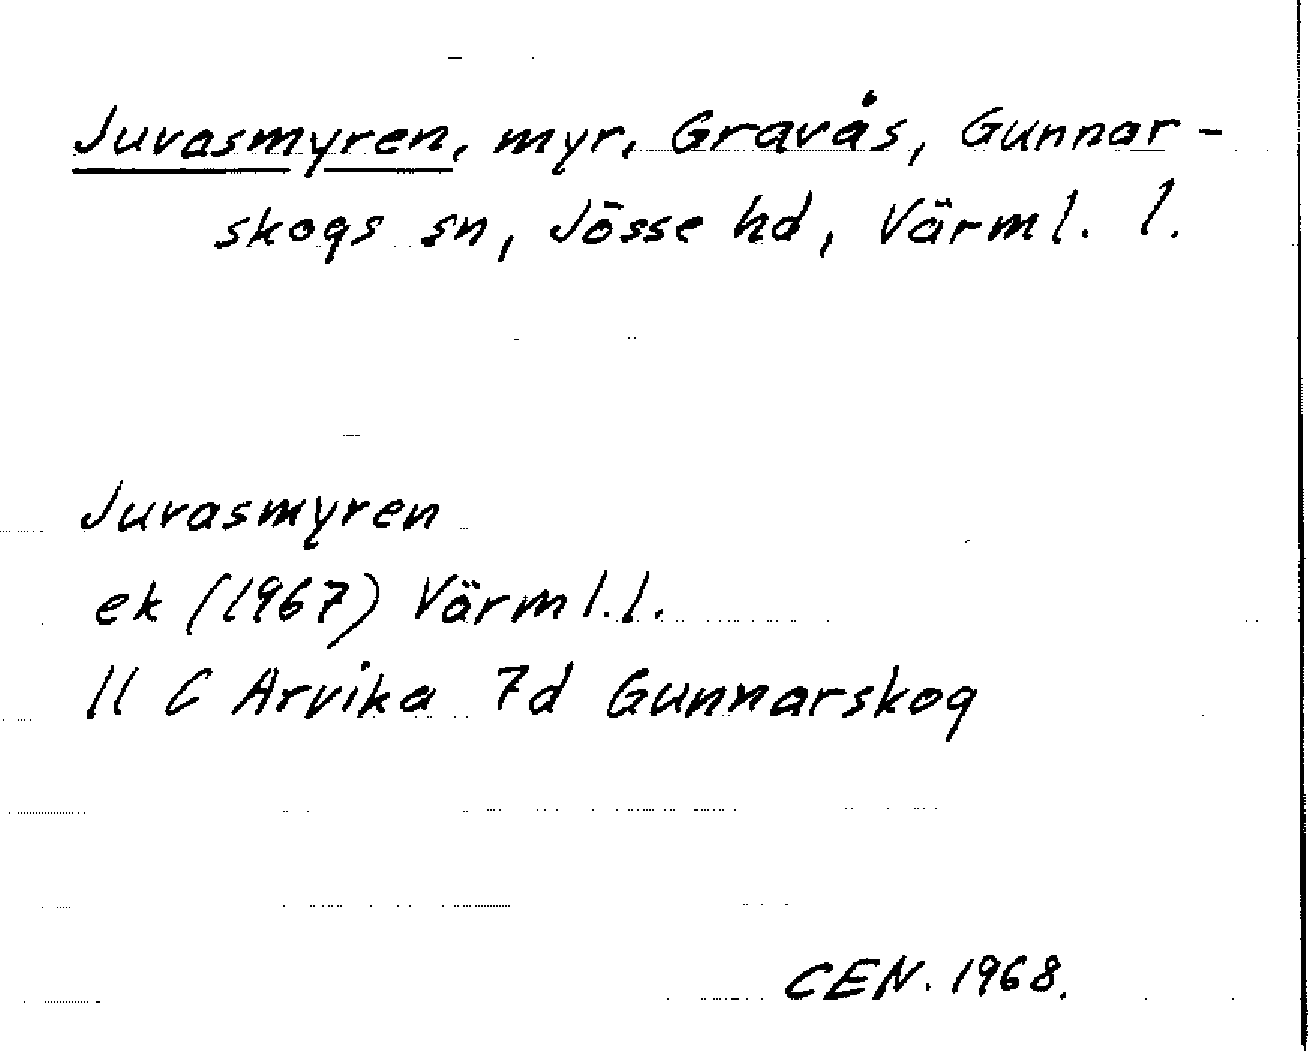 Juvasmyren, myr, Gravås, Gunnar-
skogs sn, Jösse hd, Värml. l.
Juvasmyren
ek (1967) Värml.l.
11 C Arvika 7d Gunnarskog
CEN. 1968.